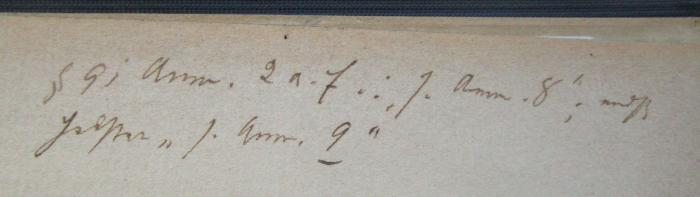 § 9; Anm. 2 a. f.: „s. Anm. 8“; muß
heißen „s. Anm. 9“